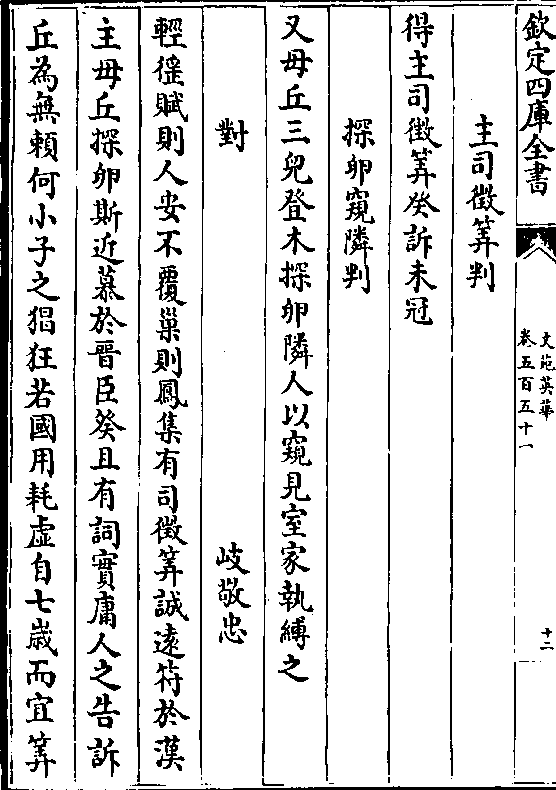 欽定四庫全書
文苑英華
卷五百五十一
十二
主司徴筭判
得主司徴筭癸訴未冠
探卵窺隣判
又毋丘三兒登木探卵隣人以窺見室家執縛之
對
岐敬忠
輕徭賦則人安不覆巢則鳳集有司徴筭誠逺符於漢
主毋丘探卵斯近慕於晉臣癸且有詞實庸人之告訴
丘為無頼何小子之猖狂若國用耗虛自七歲而宜筭